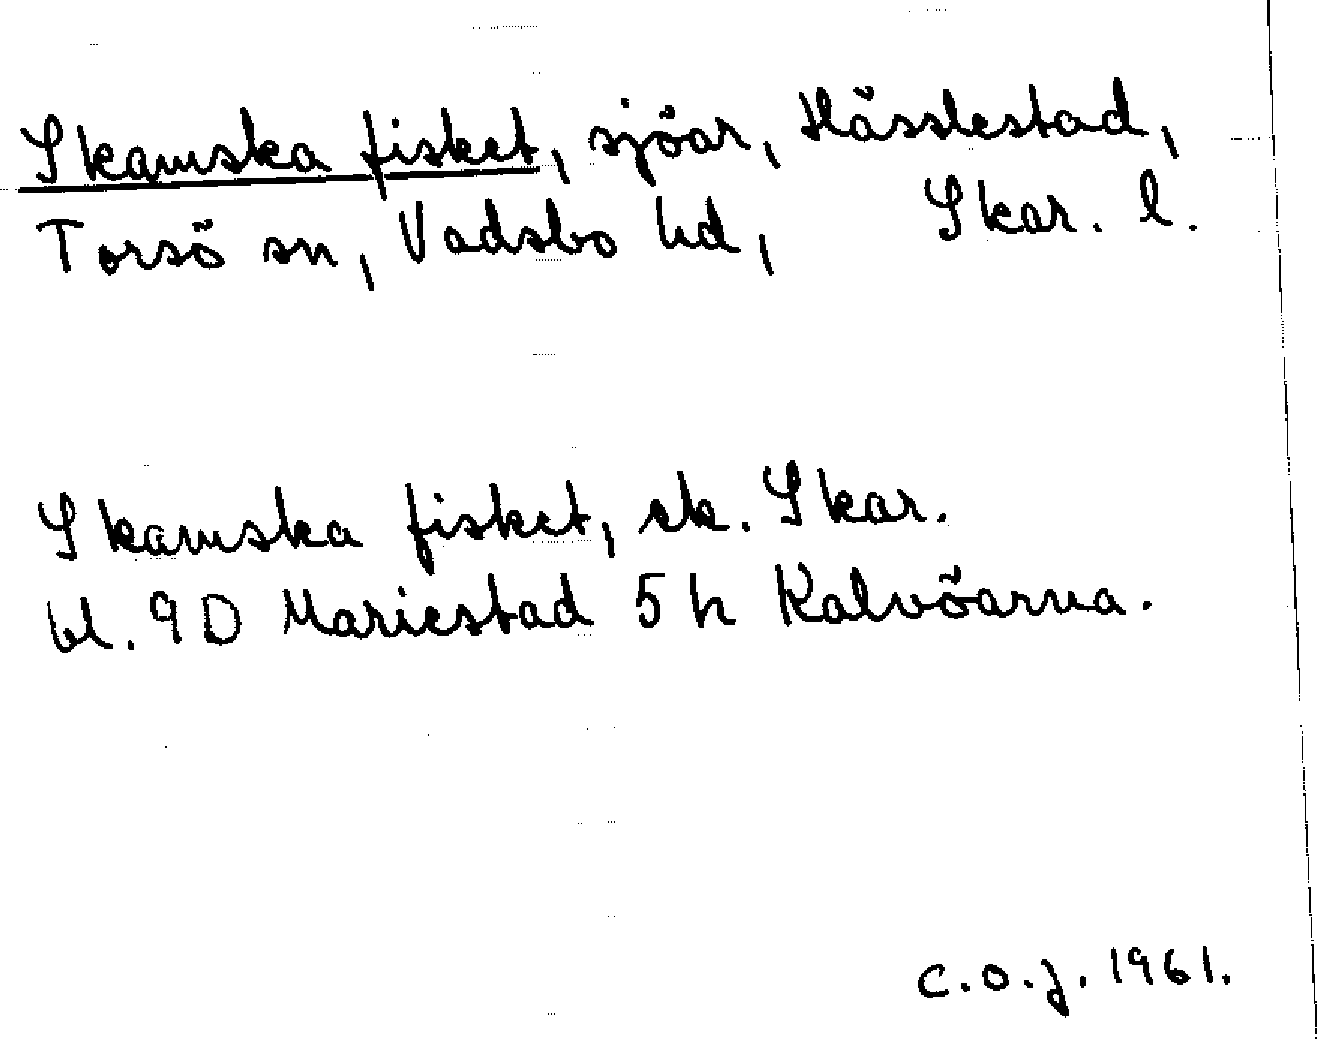 Skamska fisket, sjöar, Hässlestad,
Torsö sn, Vadsbo hd, Skar. l.
Skamska fisket, ek. Skar.
bl. 9D Mariestad 5h Kalvöarna.
C.O.J. 1961.